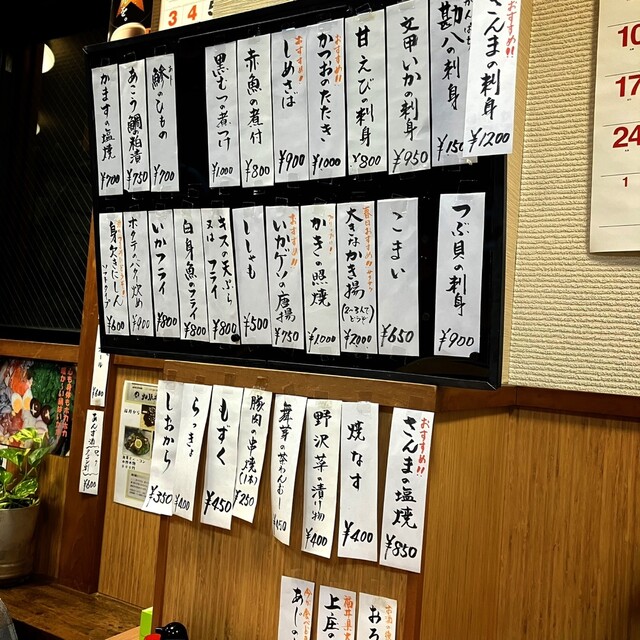 おすすめ!!
さんまの刺身
¥1200
かんぱち
勘八の刺身
¥150
文甲いかの刺身
¥950
甘えびの刺身
¥800
おすすめ!!
かつおのたたき
¥1000
おすすめ!!
しめさば
¥900
赤魚の煮付
¥800
黒むつの煮つけ
¥1000
鯵のひもの
¥700
あこう鯛粕漬
¥750
かますの塩焼
¥700
つぶ貝の刺身
¥900
こまい
¥650
大きなかき揚
(2~3人でどうぞ)
¥2000
かきの照焼
¥1000
おすすめ!!
いかゲソの唐揚
¥750
ししゃも
¥500
キスの天ぷら
又は フライ
¥800
白身魚のフライ
¥800
いかフライ
¥800
ホタテのバター炒め
¥900
身欠きにしん
¥600
おすすめ!!
さんまの塩焼
¥850
焼なす
¥400
野沢菜の漬け物
¥400
舞茸の茶わんむし
¥450
豚肉の串焼(1本)
¥250
もずく
¥450
らっきょ
¥400
しおから
¥350
¥600
あんず酒
¥600
おろ
上庄の
あじの
3 4 5
10
17
24
1